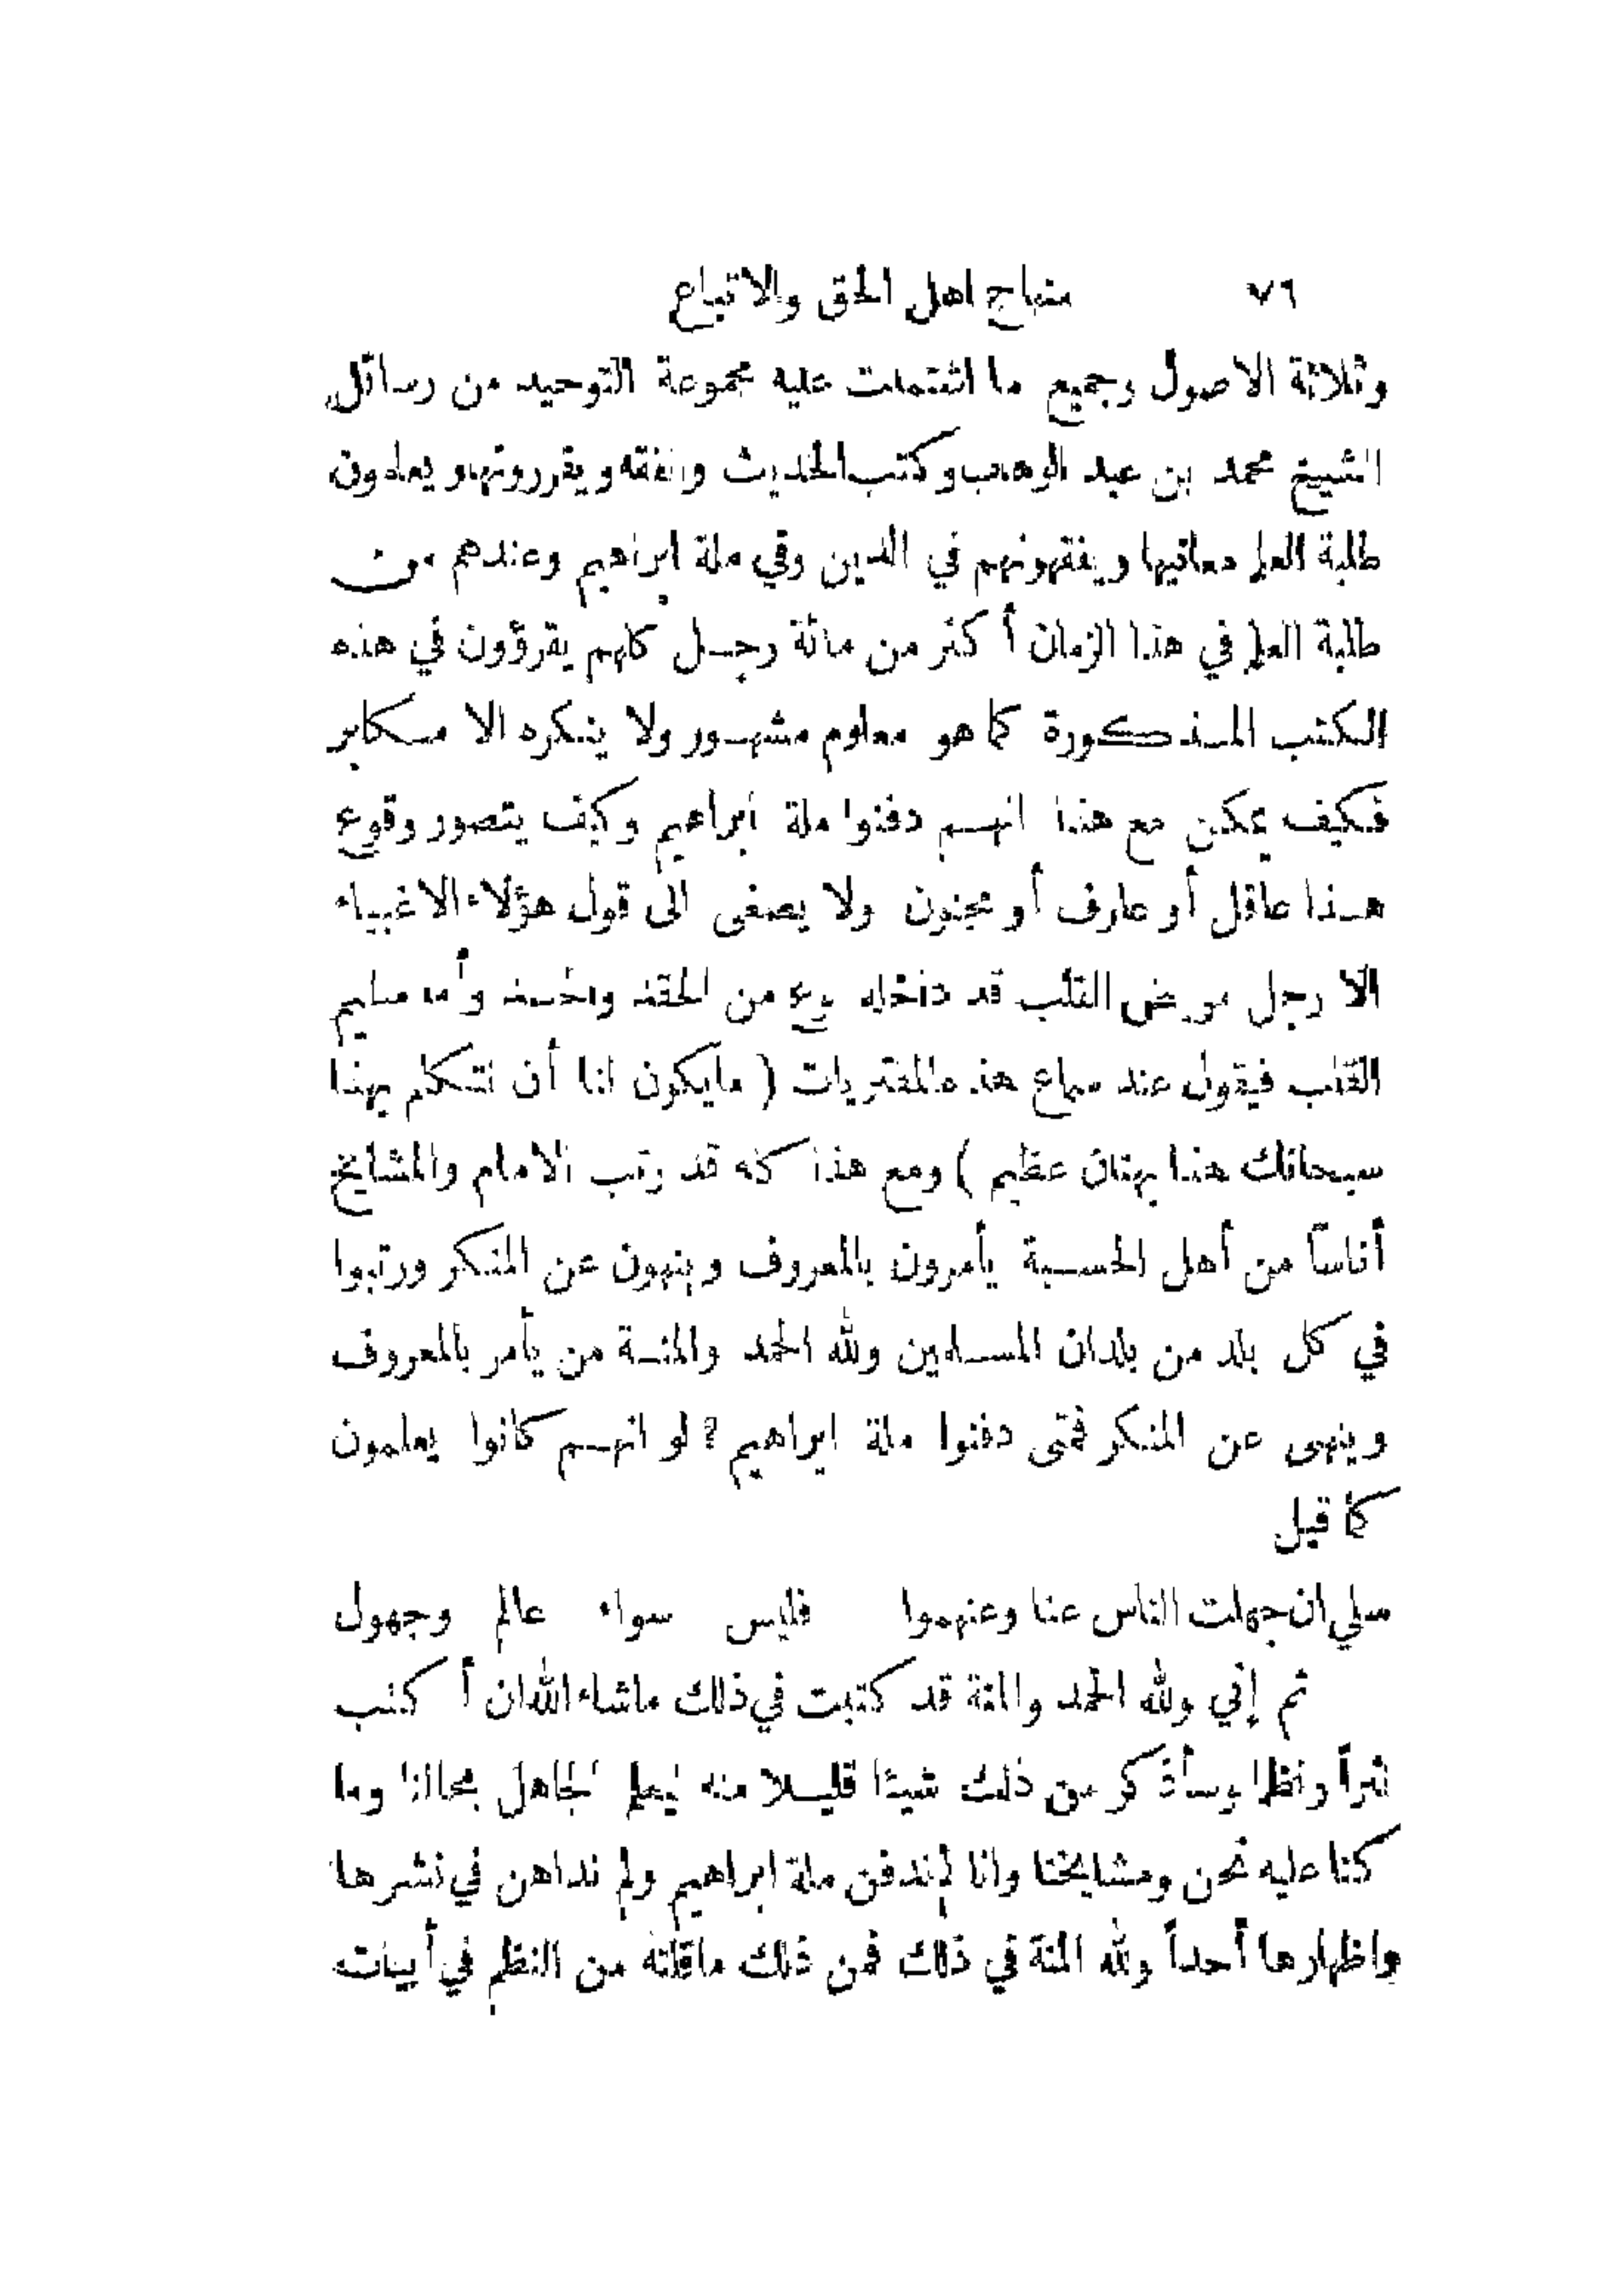 ٧٦ منهاج اهل الحق والاتباع
وثلاثة الاصول وجميع ما اشتملت عليه مجموعة التوحيد من رسائل
الشيخ محمد بن عبد الوهاب وكتب الحديث والفقه ويقررونها ويعلمون
طلبة العلم معانيها ويفقهونهم في الدين وفي ملة ابراهيم وعندهم من
طلبة العلم في هذا الزمان أكثر من مائة رجل كلهم يقرؤون في هذه
الكتب المذكورة كما هو معلوم مشهور ولا ينكره الا مكابر
فكيف يمكن مع هذا انهم دفنوا ملة ابراهيم وكيف يتصور وقوع
هذا عاقل أو عارف أو مجنون ولا يصغى الى قول هؤلاء الاغبياء
الا رجل مريض القلب قد داخله من الحقد والحسد وأما سليم
القلب فيقول عند سماع هذه المفتريات ( مايكون لنا أن نتكلم بهذا
سبحانك هذا بهتان عظيم ) ومع هذا كله قد رتب الامام والمشايخ
أناساً من أهل الحسبة يأمرون بالمعروف وينهون عن المنكر ورتبوا
في كل بلد من بلدان المسلمين ولله الحمد والمنة من يأمر بالمعروف
وينهى عن المنكر فمتى دفنوا ملة ابراهيم ؟ لو انهم كانوا يعلمون
كما قيل
سلي ان جهلت الناس عنا وعنهموا فليس سواء عالم وجهول
ثم إني ولله الحمد والمنة قد كتبت في ذلك ماشاء الله ان أكتب
نثراً ونظما وسأذكر من ذلك شيئا قليلا منه ليعلم الجاهل بحالنا وما
كنا عليه نحن ومشايخنا وانا لم ندفن ملة ابراهيم ولم نداهن في نشرها
واظهارها أحداً ولله المنة في ذلك فمن ذلك ماقلته من النظم في أبيات